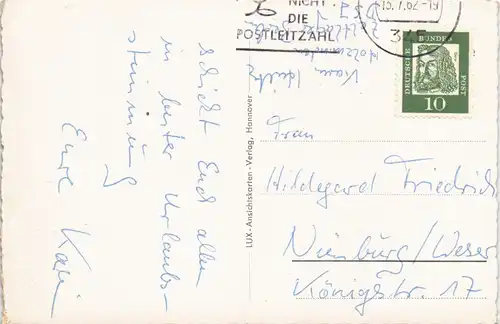 NICHT
DIE
POSTLEITZAHL
15.7.62-19
DEUTSCHE BUNDES POST
10
schickt Euch allen
in bester Urlaubs-
stimmung
Eure Karin
LUX-Ansichtskarten-Verlag, Hannover
Frau
Hildegard Friedrich
Nienburg/Weser
Königstr. 17